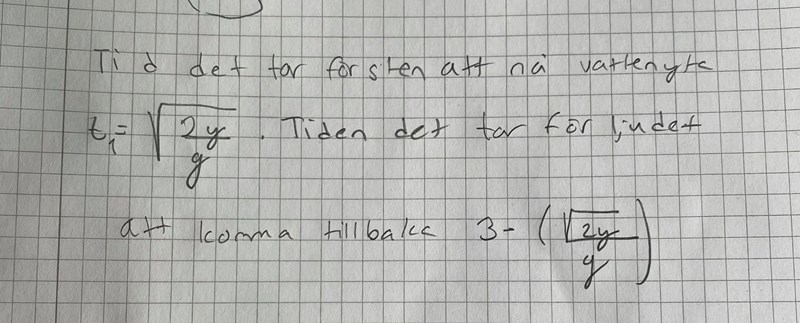 Tid det tar för sten att nå vattenyte
t₁ = √(2y/g) . Tiden det tar för ljudet
att komma tillbaka 3 - (√(2y/g))